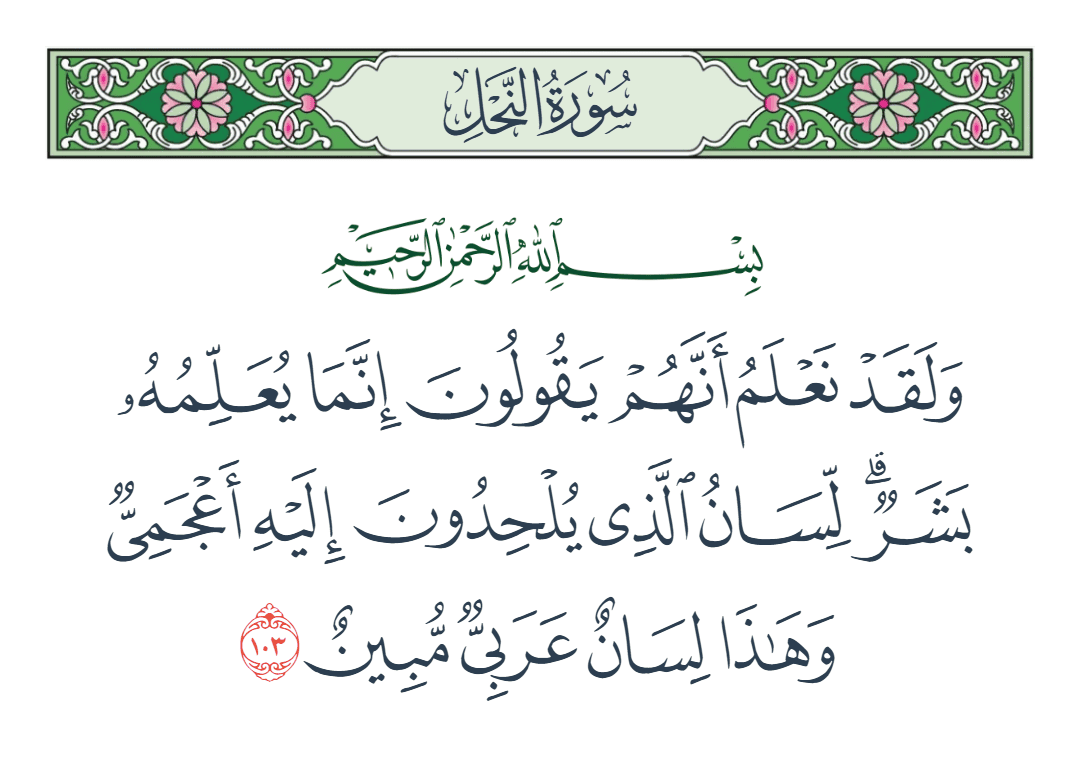 سُورَةُ النَّحْلِ
بِسْمِ ٱللَّهِ ٱلرَّحْمَٰنِ ٱلرَّحِيمِ
وَلَقَدْ نَعْلَمُ أَنَّهُمْ يَقُولُونَ إِنَّمَا يُعَلِّمُهُۥ
بَشَرٌۗ لِّسَانُ ٱلَّذِى يُلْحِدُونَ إِلَيْهِ أَعْجَمِىٌّ
وَهَٰذَا لِسَانٌ عَرَبِىٌّ مُّبِينٌ ١٠٣